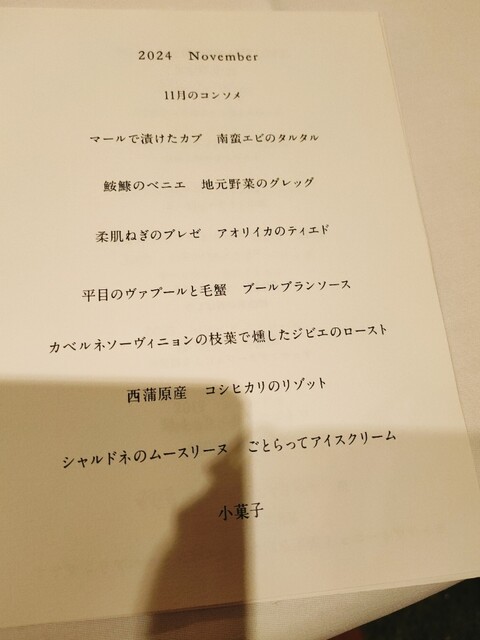 2024 November
11月のコンソメ
マールで漬けたカブ 南蛮エビのタルタル
鮟鱇のベニエ 地元野菜のグレッグ
柔肌ねぎのブレゼ アオリイカのティエド
平目のヴァプールと毛蟹 ブールブランソース
カベルネソーヴィニョンの枝葉で燻したジビエのロースト
西蒲原産 コシヒカリのリゾット
シャルドネのムースリーヌ ごとらってアイスクリーム
小菓子